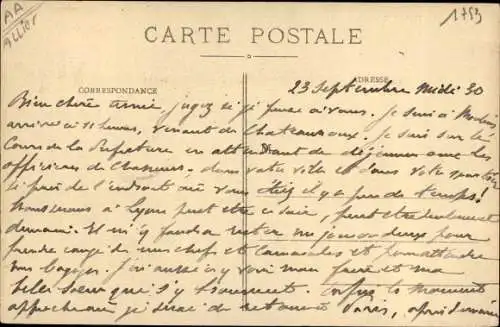 AA
ALLIER
1753
CARTE POSTALE
CORRESPONDANCE
ADRESSE
23 Septembre midi 30
Bien chère amie jugez si je pense à vous. Je suis à Moulins
arrivé à 11 heures, venant de Chateauroux. Je suis sur le
Cours de la Préfecture en attendant de déjeuner avec les
officiers de Chasseurs. dans votre ville et dans votre quartier
si près de l'endroit où vous étiez il y a peu de temps!
à Lyon peut être ce soir, peut être seulement
demain. Et il m'y faudra rester un jour ou deux pour
prendre congé de mes chefs et camarades et
mes bagages. J'ai aussi à y voir mon frère et ma
belle soeur qui s'y trouvent. Enfin le moment
approche où je serai de retour à Paris, après demain